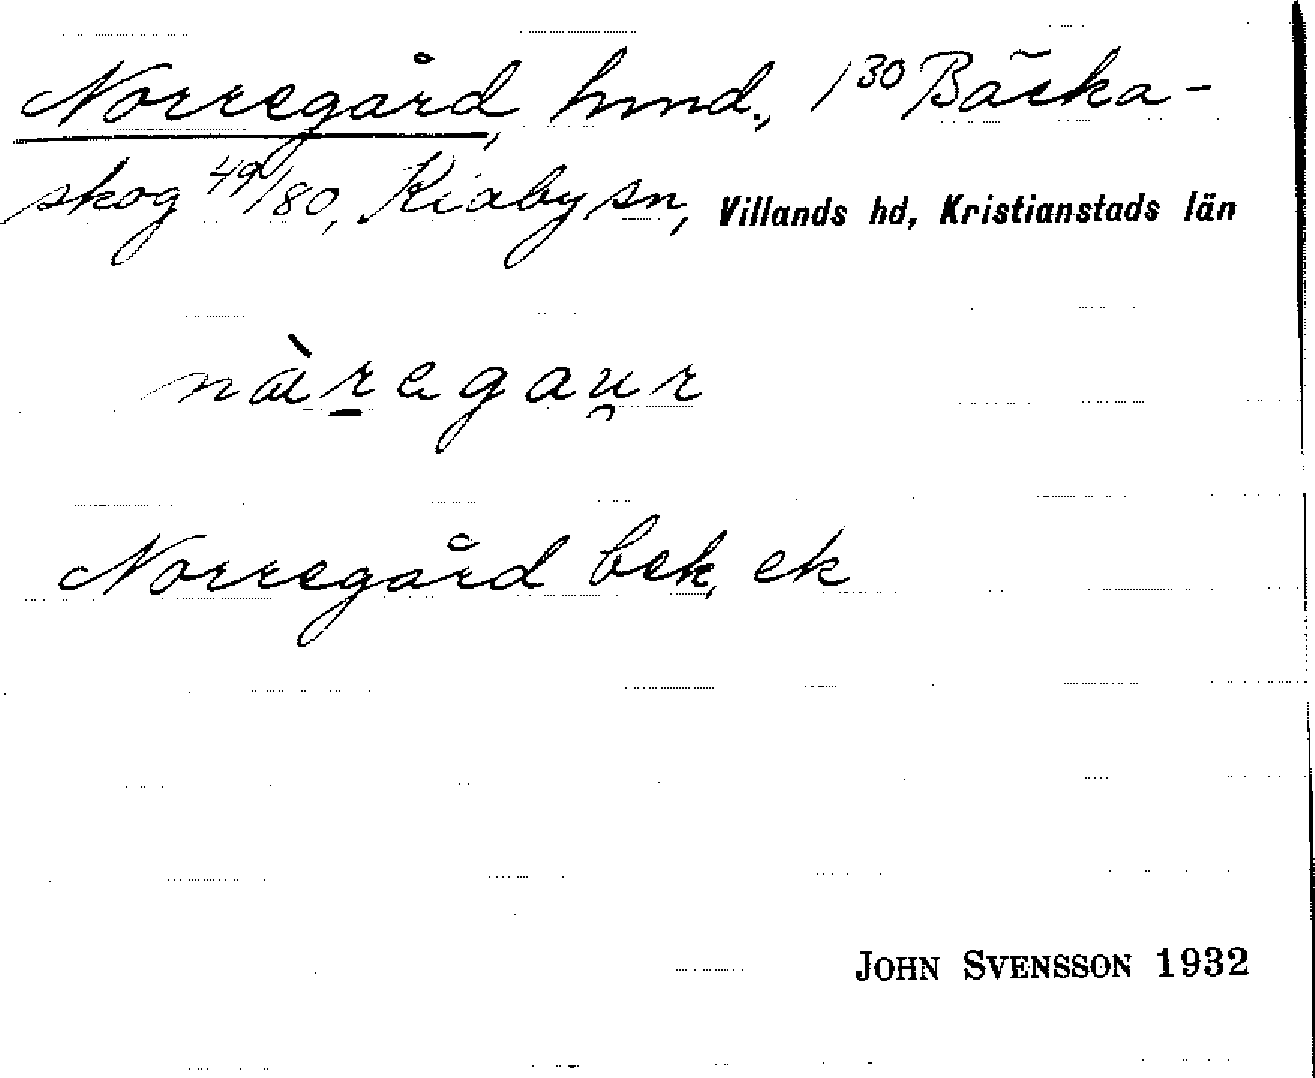 Norregård, hmd., 1³⁰ Bäcka-
skog 49/80, Kiaby sn, Villands hd, Kristianstads län
nàregau̯r
Norregård bek, ek
JOHN SVENSSON 1932